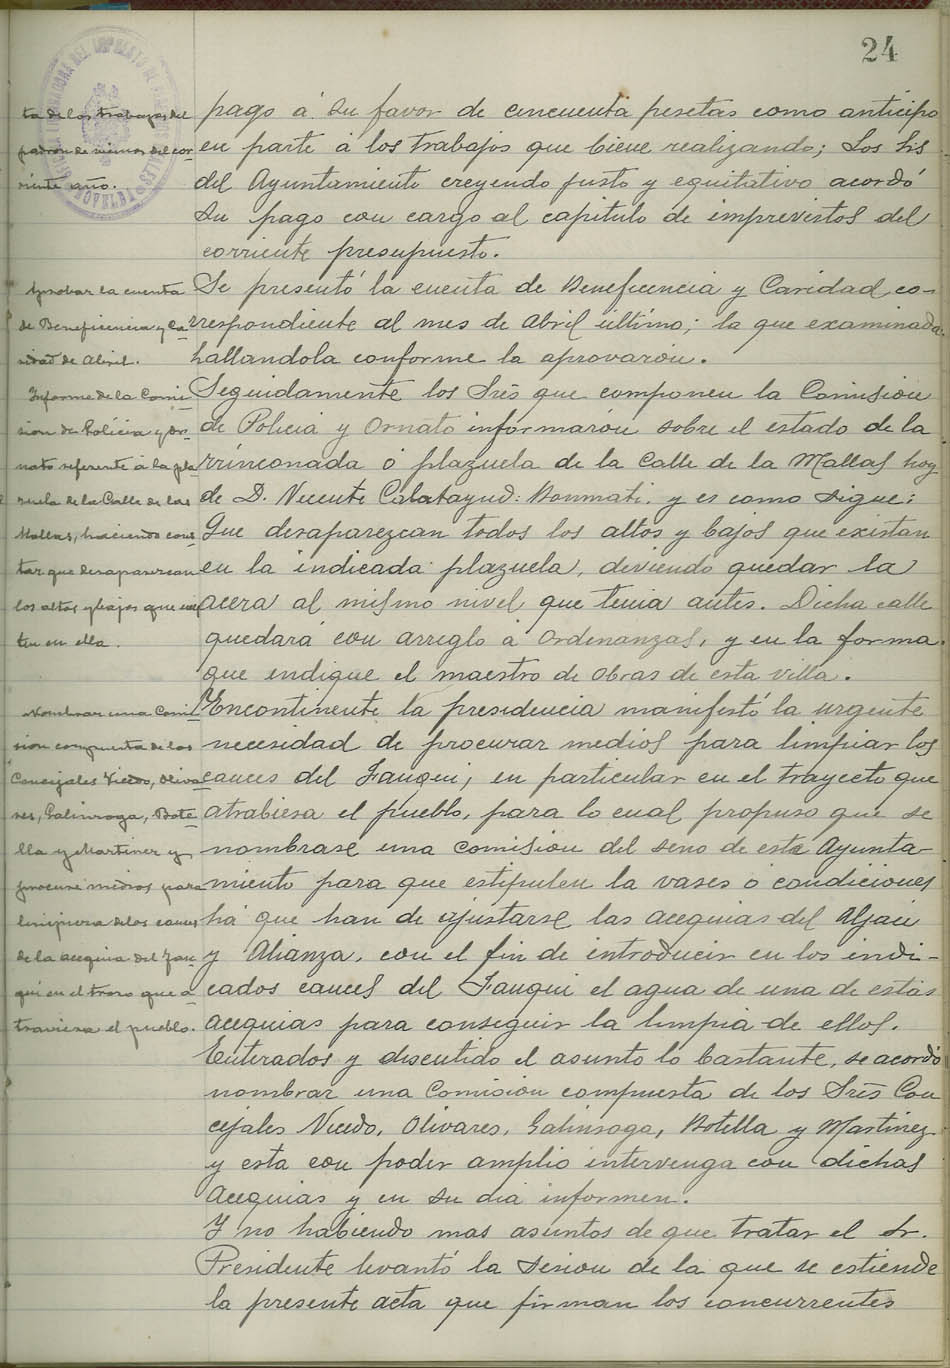 24
ta de los trabajos del
padron de mimos del cor-
riente año.
pago á su favor de cincuenta pesetas como anticipo
en parte á los trabajos que biene realizando; Los Srs
del Ayuntamiento creyendo justo y equitativo acordó
su pago con cargo al capitulo de imprevistos del
corriente presupuesto.
Aprobar la cuenta
de Beneficencia y Ca-
ridad de Abril.
Se presentó la cuenta de Beneficencia y Caridad co-
rrespondiente al mes de Abril ultimo; la que examinada
hallandola conforme la aprovarón.
Informe de la Comi-
sion de Policia y Or-
nato referente á la pla-
zuela de la Calle de las
Mallas, haciendo cons-
tar que desaparezcan
los altos y bajos que exis-
ten en ella.
Seguidamente los Srēs que componen la Comision
de Policia y Ornato informarón sobre el estado de la
rrinconada ó plazuela de la Calle de la Mallas hoy
de D. Vicente Calatayud: Bonmati. y es como sigue:
Que desaparezcan todos los altos y bajos que existan
en la indicada plazuela, deviendo quedar la
acera al mismo nivel que tenia antes. Dicha calle
quedará con arreglo á Ordenanzas, y en la forma
que indique el maestro de obras de esta villa.
Nombrar una Comi-
sion compuesta de los
Concejales Vicedo, Oliva-
res, Galinsoga, Bote-
lla y Martinez y
procure medios para
limpieza de los cauces
de la acequia del Fau-
qui en el trozo que a-
traviesa el pueblo.
Encontinente la presidencia manifestó la urgente
necesidad de procurar medios para limpiar los
cauces del Fauqui, en particular en el trayecto que
atrabiesa el pueblo, para lo cual propuso que se
nombrase una comision del seno de este Ayunta-
miento para que estipulen la vases ó condiciones
há que han de ajustarse las acequias del Aljau
y Alianza, con el fin de introducir en los indi-
cados cauces del Fauqui el agua de una de estas
acequias para conseguir la limpia de ellos.
Enterados y discutido el asunto lo bastante, se acordó
nombrar una Comision compuesta de los Srēs Con
cejales Vicedo, Olivares, Galinsoga, Botella y Martinez
y esta con poder amplio intervenga con dichas
Acequias y en su dia informen.
Y no habiendo mas asuntos de que tratar el Sr.
Presidente levantó la sesion de la que se estiende
la presente acta que firman los concurrentes